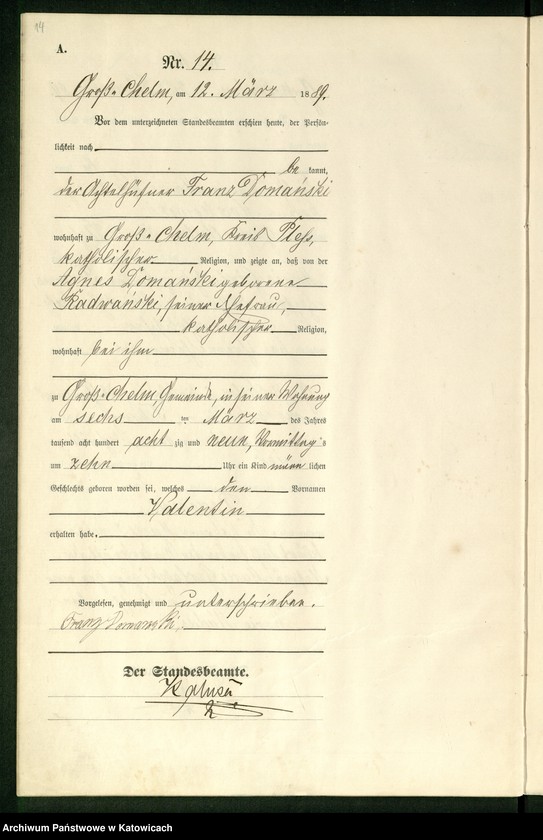 14
A.
Nr. 14.
Groß-Chelm, am 12. März 1889.
Vor dem unterzeichneten Standesbeamten erschien heute, der Persön-
lichkeit nach
be kannt,
der Achtelhüfner Franz Domański
wohnhaft zu Groß-Chelm, Kreis Pless,
katholischer Religion, und zeigte an, daß von der
Agnes Domański geborene
Radwański, seiner Ehefrau,
katholischer Religion,
wohnhaft bei ihm
zu Groß-Chelm Gemeinde, in seiner Wohnung
am sechs ten März des Jahres
tausend acht hundert acht zig und neun, Vormittags
um zehn Uhr ein Kind männ lichen
Geschlechts geboren worden sei, welches den Vornamen
Valentin
erhalten habe.
Vorgelesen, genehmigt und unterschrieben.
Franz Domanski
Der Standesbeamte.
Archiwum Państwowe w Katowicach